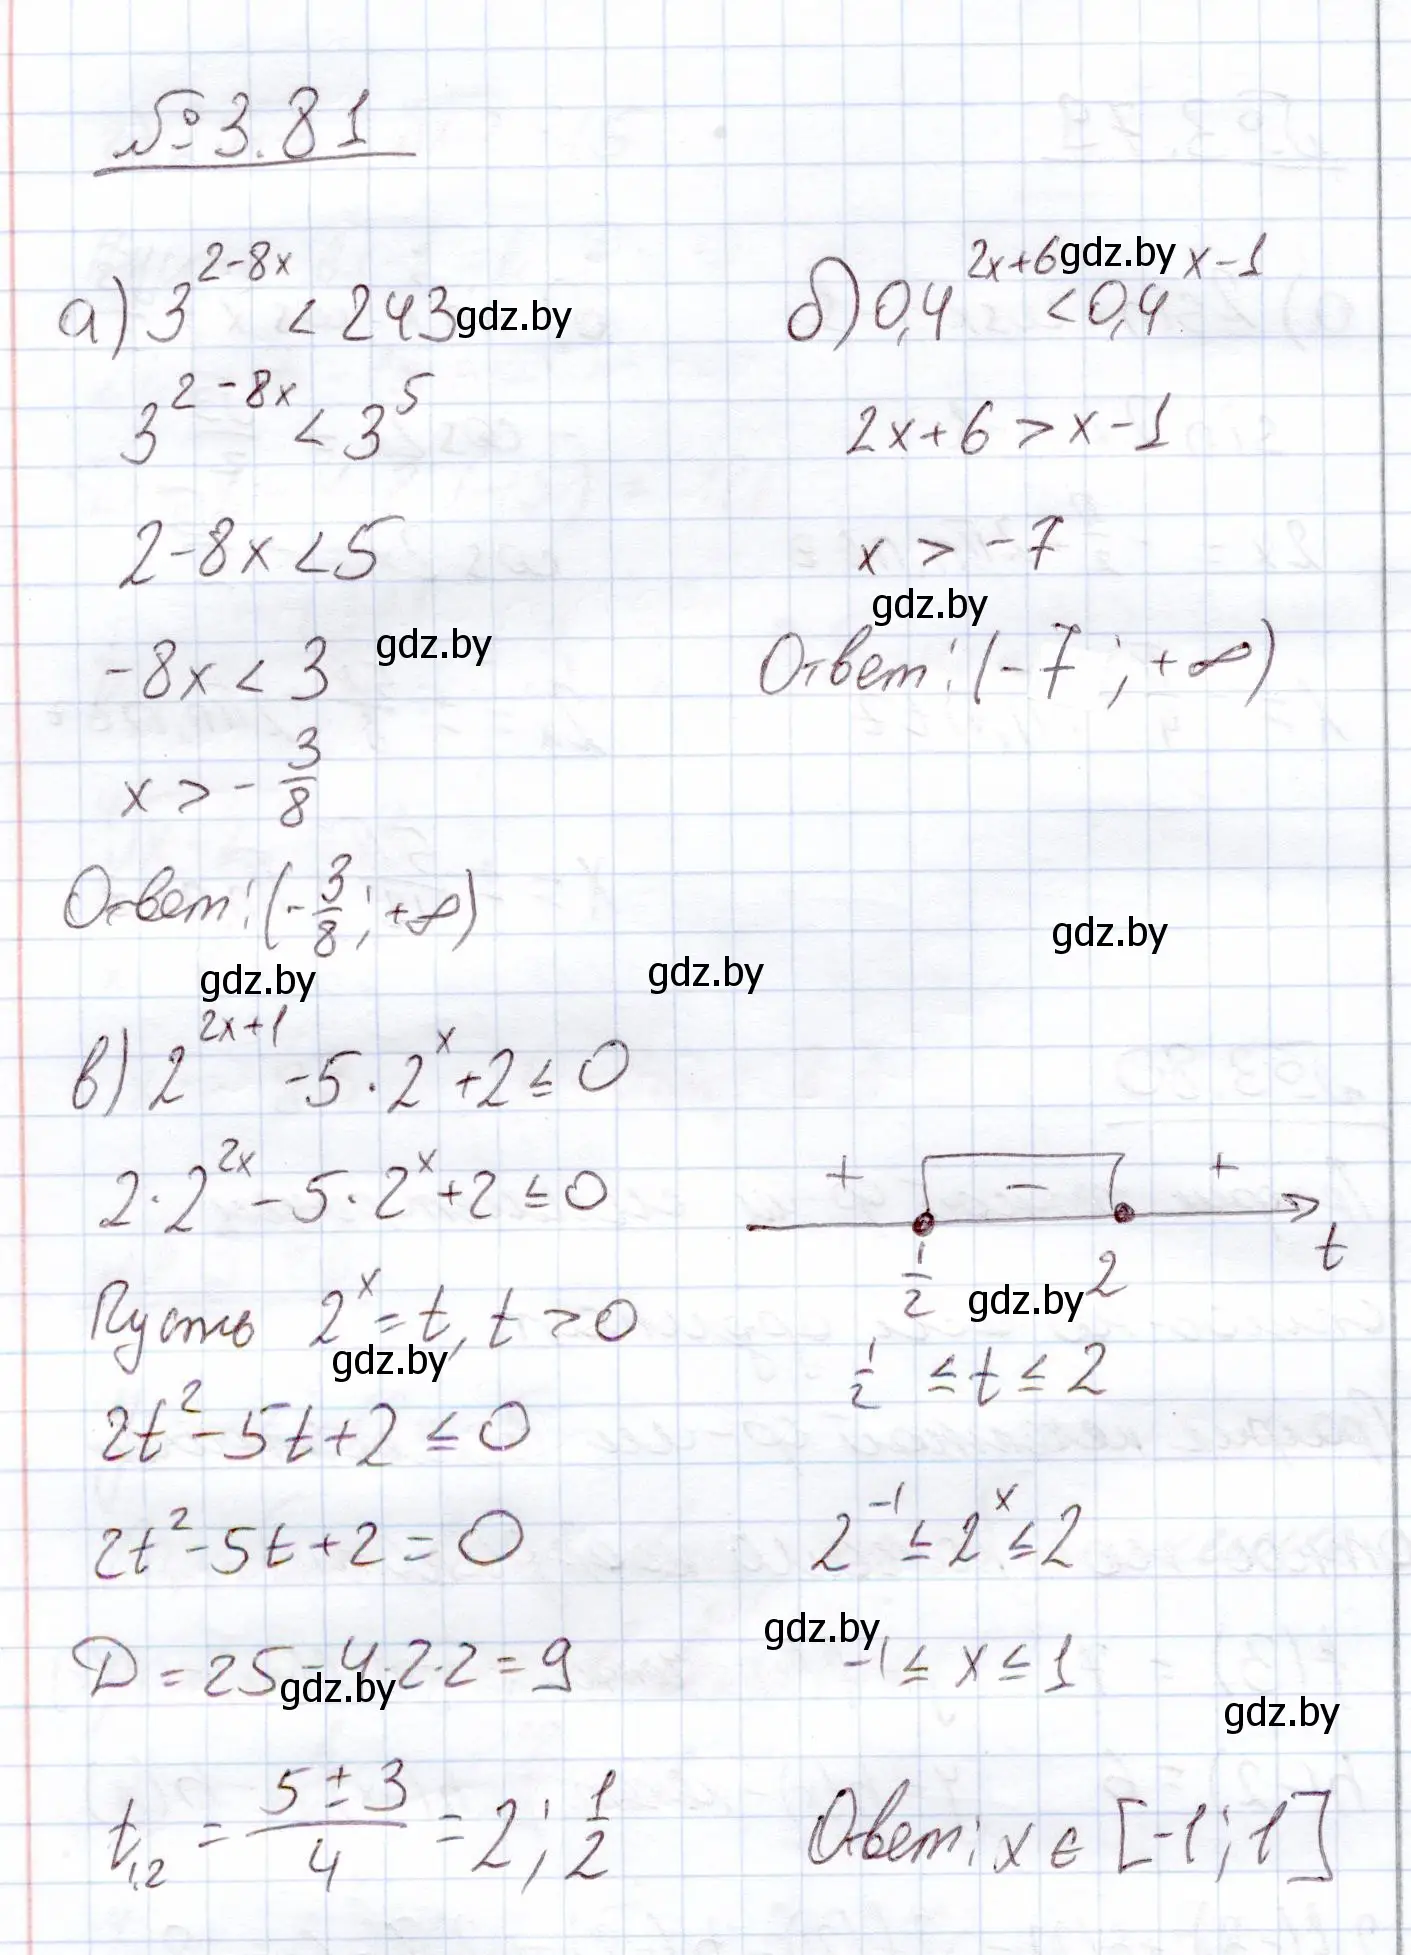 № 3.81
а) 3^(2-8x) < 243 gdz.by
3^(2-8x) < 3^5
2-8x < 5
-8x < 3 gdz.by
x > -3/8
Ответ: (-3/8; +∞)
gdz.by
б) 0,4^(2x+6) < 0,4^(x-1) gdz.by
2x+6 > x-1
x > -7
gdz.by
Ответ: (-7; +∞)
gdz.by
gdz.by
в) 2^(2x+1) - 5·2^x + 2 ≤ 0
2·2^(2x) - 5·2^x + 2 ≤ 0
Пусть 2^x = t, t > 0
gdz.by
2t² - 5t + 2 ≤ 0
2t² - 5t + 2 = 0
D = 25 - 4·2·2 = 9
gdz.by
t₁,₂ = (5 ± 3)/4 = 2; 1/2
+ - +
1/2 2 t
gdz.by
1/2 ≤ t ≤ 2
2^(-1) ≤ 2^x ≤ 2
gdz.by
-1 ≤ x ≤ 1
gdz.by
Ответ: x ∈ [-1; 1]